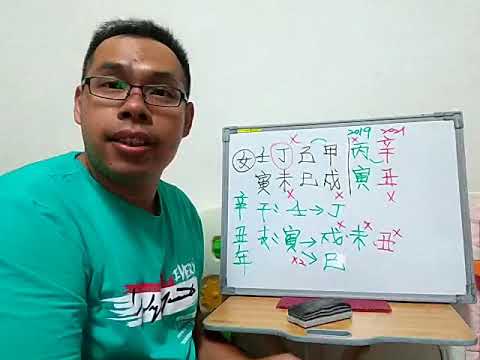 2019 2021
女 壬 丁 己 甲 丙 辛
寅 未 巳 戌 寅 丑
辛 干: 壬→丁
丑 支: 寅→戌、未、丑
年 x2→巳